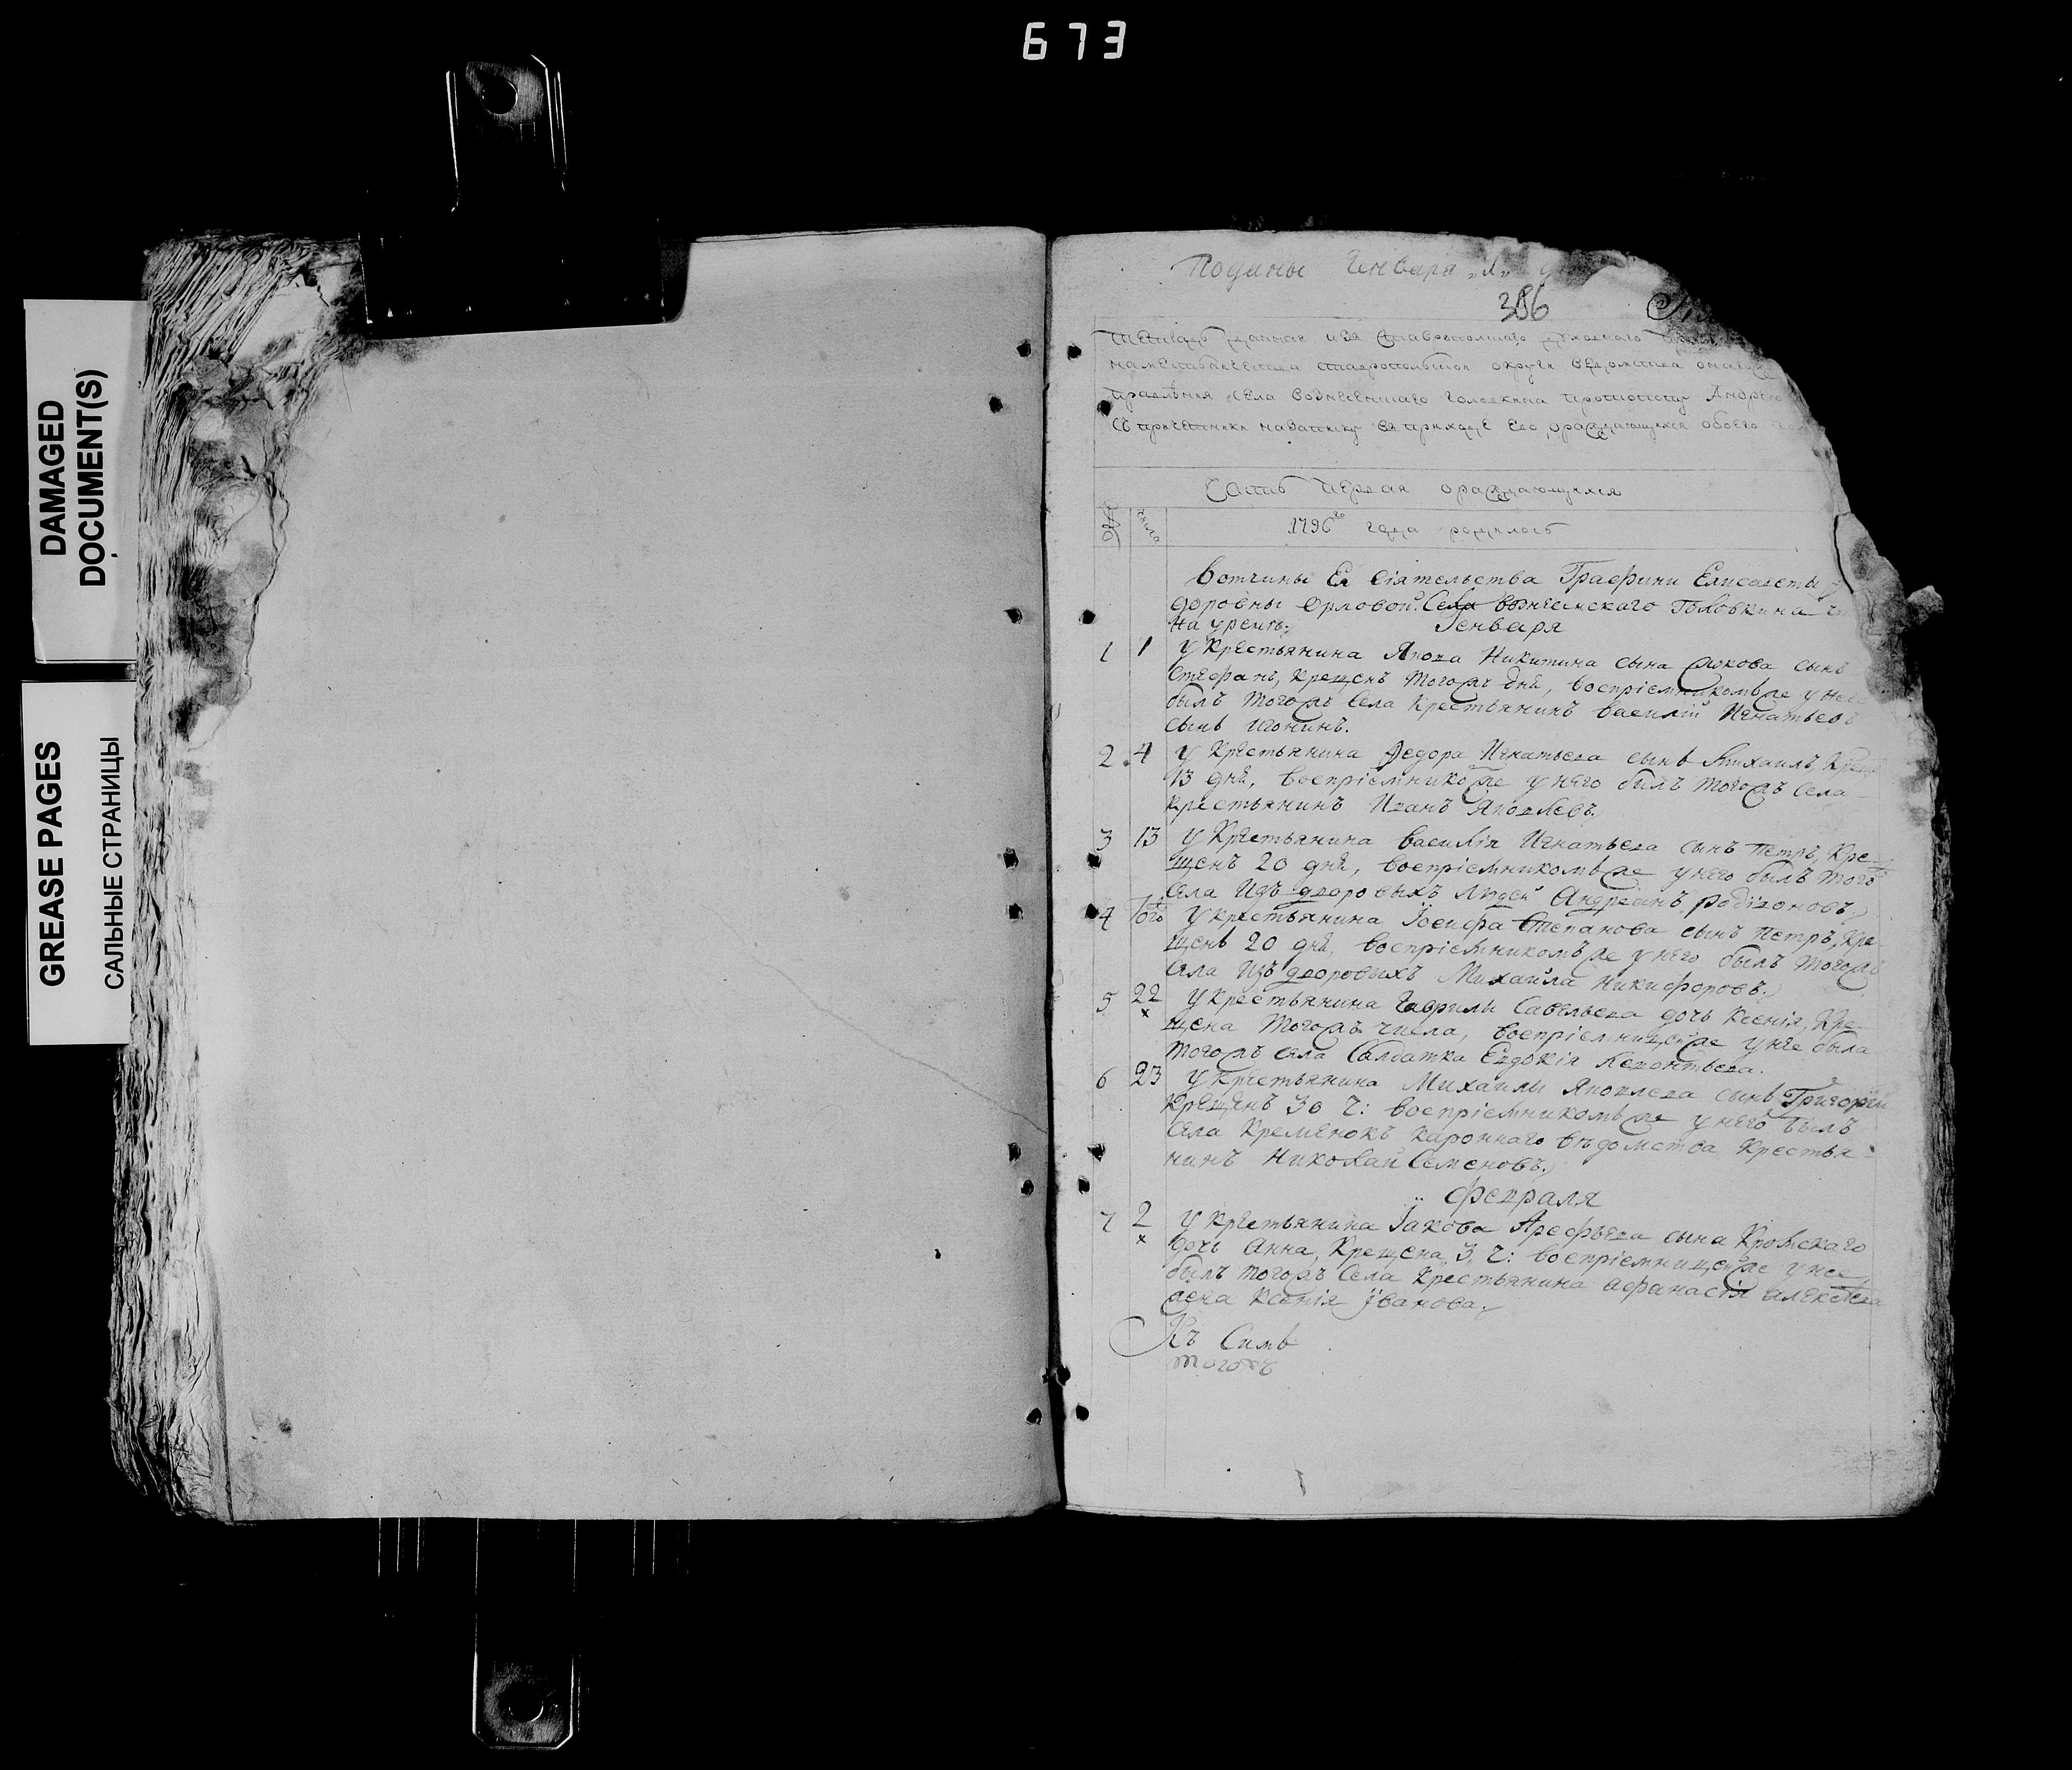 673
DAMAGED
DOCUMENT(S)
GREASE PAGES
САЛЬНЫЕ СТРАНИЦЫ
Поданы Генваря
386
данная изъ Ставропольскаго духовнаго
наместничества ставропольской округи ведомства онаго
правления села вознесеншаго головкина протопопу Андрею
съ причетники на записку въ приходе его, раждающихся обоего
Часть первая о раждающихся
числа
1796го года родилось
Вотчины Ея Сіятельства Графини Елисаветы
доровны Орловой Села вознесенскаго Головкина
на уренть
Генваря
1 1 у крестьянина Якова Никитина сына сынъ
Стефанъ, крещенъ тогожъ дня, воспріемникомъ же у него
былъ тогожъ села крестьянинъ василій Игнатьевъ
сынъ Игонинъ.
2 4 у крестьянина Федора Игнатьева сынъ Михаилъ,
13 дня, воспріемникомъ же у него былъ тогожъ села
крестьянинъ Иванъ Яковлевъ.
3 13 у крестьянина василія Игнатьева сынъ петръ, кре-
щенъ 20 дня, воспріемникомъ же у него былъ тогожъ
села Изъ дворовыхъ людей Андреянъ родіоновъ.
4 того у крестьянина Іосифа Степанова сынъ петръ, кре-
щенъ 20 дня, воспріемникомъ же у него былъ тогожъ
села Изъ дворовыхъ Михаила Никифоровъ.
5 22 у крестьянина Гаврилы Савельева дочь Ксенія, кре-
щена тогожъ числа, воспріемницей же у нее была
тогожъ села Солдатка Евдокія Леонтьева.
6 23 у крестьянина Михаилы Яковлева сынъ Григорій
крещенъ 30 ч: воспріемникомъ же у него былъ
села Кременокъ кароннаго въдомства крестья-
нинъ Николай Семеновъ.
февраля
7 2 у крестьянина Іакова Арефьева сына Кромскаго
дочь Анна, крещена 3 ч: воспріемницей же у нее
былъ тогожъ села крестьянина афанасія алексеева
жена Ксенія Іванова.
Къ Симъ
тогожъ